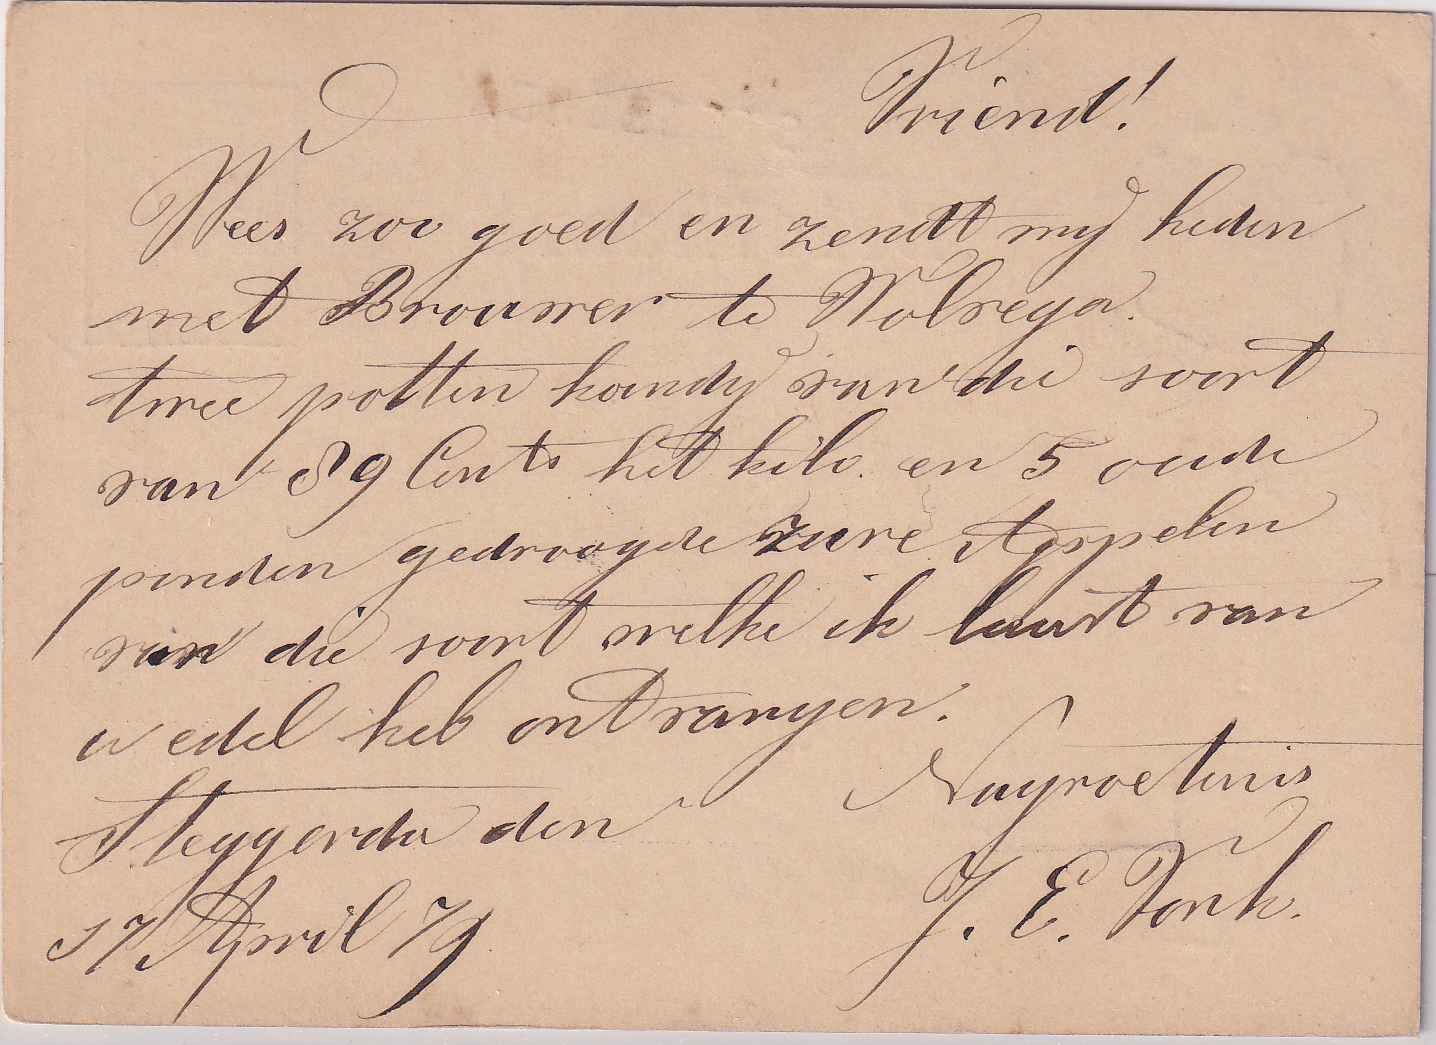 Vriend!
Wees zoo goed en zendt mij heden
met Brouwer te Wolvega.
twee potten kandij van die soort
van 89 Cents het kilo. en 5 oude
ponden gedroogde zure Appelen
van die soort welke ik laatst van
u edel heb ontvangen.
Nagroetenis
Steggerda den
17 April 79
J. E. Vonk.